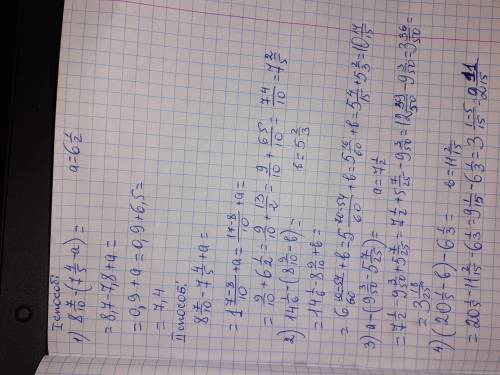 I способ:
1) 8 7/10 - (7 4/5 - a) =        a = 6 1/2
= 8,7 - 7,8 + a =
= 0,9 + a = 0,9 + 6,5 =
= 7,4
II способ:
8 7/10 - 7 4/5 + a =
= 1 7-8/10 + a = 17-8/10 + a =
= 9/10 + 6 1/2 = 9/10 + 13/2 = 9/10 + 65/10 = 74/10 = 7 2/5
2) 14 1/6 - (8 9/10 - b) =        b = 5 2/3
= 14 1/6 - 8 9/10 + b =
+ b = 5 + b = 5 16/60 + b = 5 4/15 + 5 2/3 = 10 14/15
3) a - (9 3/50 - 5 7/25) =        a = 7 1/2
= 7 1/2 - 9 3/50 + 5 7/25 = 7 1/2 + 5 7/25 - 9 3/50 = 12 39/50 - 9 3/50 = 3 36/50 =
= 3 18/25
4) (20 1/5 - b) - 6 1/3 =        b = 11 2/15
= 20 1/5 - 11 2/15 - 6 1/3 = 9 1/15 - 6 1/3 = 3 1-5/15 = 2 11/15